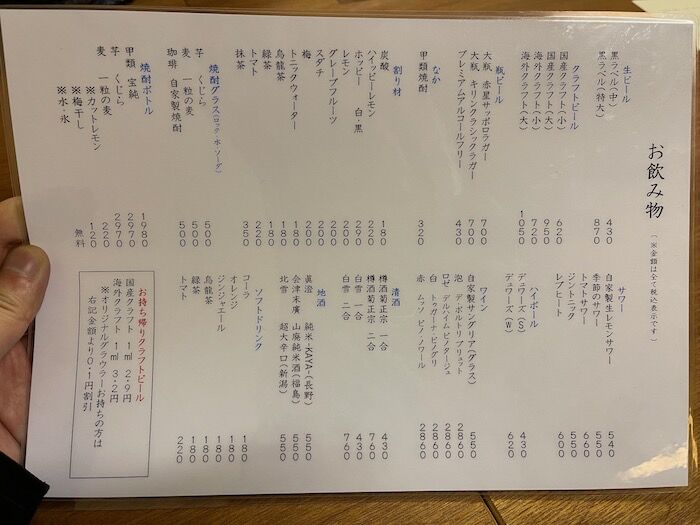 お飲み物 (※金額は全て税込表示です)
生ビール
黒ラベル(中) 430
黒ラベル(特大) 870
クラフトビール
国産クラフト(小) 620
国産クラフト(大) 950
海外クラフト(小) 720
海外クラフト(大) 1050
瓶ビール
大瓶 赤星サッポロラガー 700
大瓶 キリンクラシックラガー 700
プレミアムアルコールフリー 430
なか
甲類焼酎 320
割り材
炭酸 180
ハイッピーレモン 220
ホッピー 白・黒 220
レモン 290
グレープフルーツ 200
スダチ 200
梅 200
トニックウォーター 180
烏龍茶 180
緑茶 180
トマト 220
抹茶 350
焼酎グラス(ロック・水・ソーダ)
芋 くじら 500
麦 一粒の麦 500
珈琲 自家製焼酎 500
焼酎ボトル
甲類 宝純 1980
芋 くじら 2970
麦 一粒の麦 2970
※カットレモン 220
※梅干し 120
※水・氷 無料
サワー
自家製生レモンサワー 540
季節のサワー 550
トマトサワー 660
ジントニック 550
レプヒート 600
ハイボール
デュワーズ(S) 430
デュワーズ(W) 620
ワイン
自家製サングリア(グラス) 550
泡 デ・ボルトリ ブリュット 2860
ロゼ デルハイム ピノタージュ 2860
白 トゥガーナ ピノグリ 2860
赤 ムッソ ピノ・ノワール 2860
清酒
樽酒菊正宗 一合 430
樽酒菊正宗 二合 760
白雪 一合 430
白雪 二合 760
地酒
眞澄 純米-KAYA-(長野) 550
会津末廣 山廃純米酒(福島) 550
北雪 超大辛口(新潟) 550
ソフトドリンク
コーラ 180
オレンジ 180
ジンジャエール 180
烏龍茶 180
緑茶 180
トマト 220
お持ち帰りクラフトビール
国産クラフト 1ml 2.9円
海外クラフト 1ml 3.2円
※オリジナルグラウラーお持ちの方は
右記金額より0.1円割引